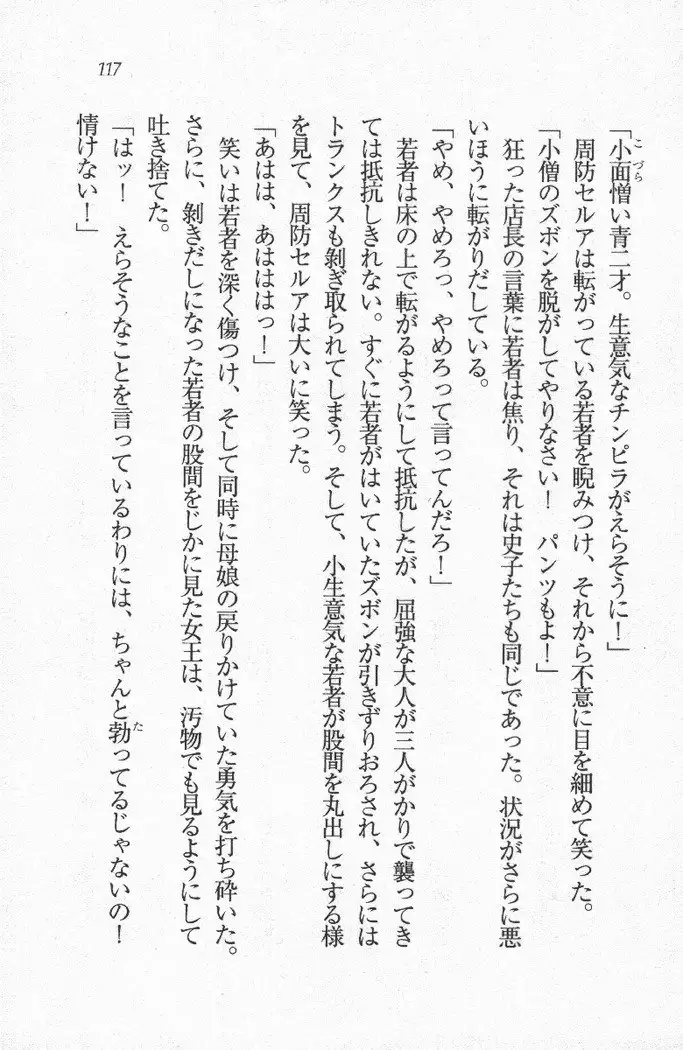 117
「小面憎い青二才。生意気なチンピラがえらそうに！」
こづら
周防セルアは転がっている若者を睨みつけ、それから不意に目を細めて笑った。
「小僧のズボンを脱がしてやりなさい！　パンツもよ！」
狂った店長の言葉に若者は焦り、それは史子たちも同じであった。状況がさらに悪
いほうに転がりだしている。
「やめ、やめろっ、やめろって言ってんだろ！」
若者は床の上で転がるようにして抵抗したが、屈強な大人が三人がかりで襲ってき
ては抵抗しきれない。すぐに若者がはいていたズボンが引きずりおろされ、さらには
トランクスも剝ぎ取られてしまう。そして、小生意気な若者が股間を丸出しにする様
を見て、周防セルアは大いに笑った。
「あはは、あはははっ！」
笑いは若者を深く傷つけ、そして同時に母娘の戻りかけていた勇気を打ち砕いた。
さらに、剝きだしになった若者の股間をじかに見た女王は、汚物でも見るようにして
吐き捨てた。
「はッ！　えらそうなことを言っているわりには、ちゃんと勃ってるじゃないの！
た
情けない！」